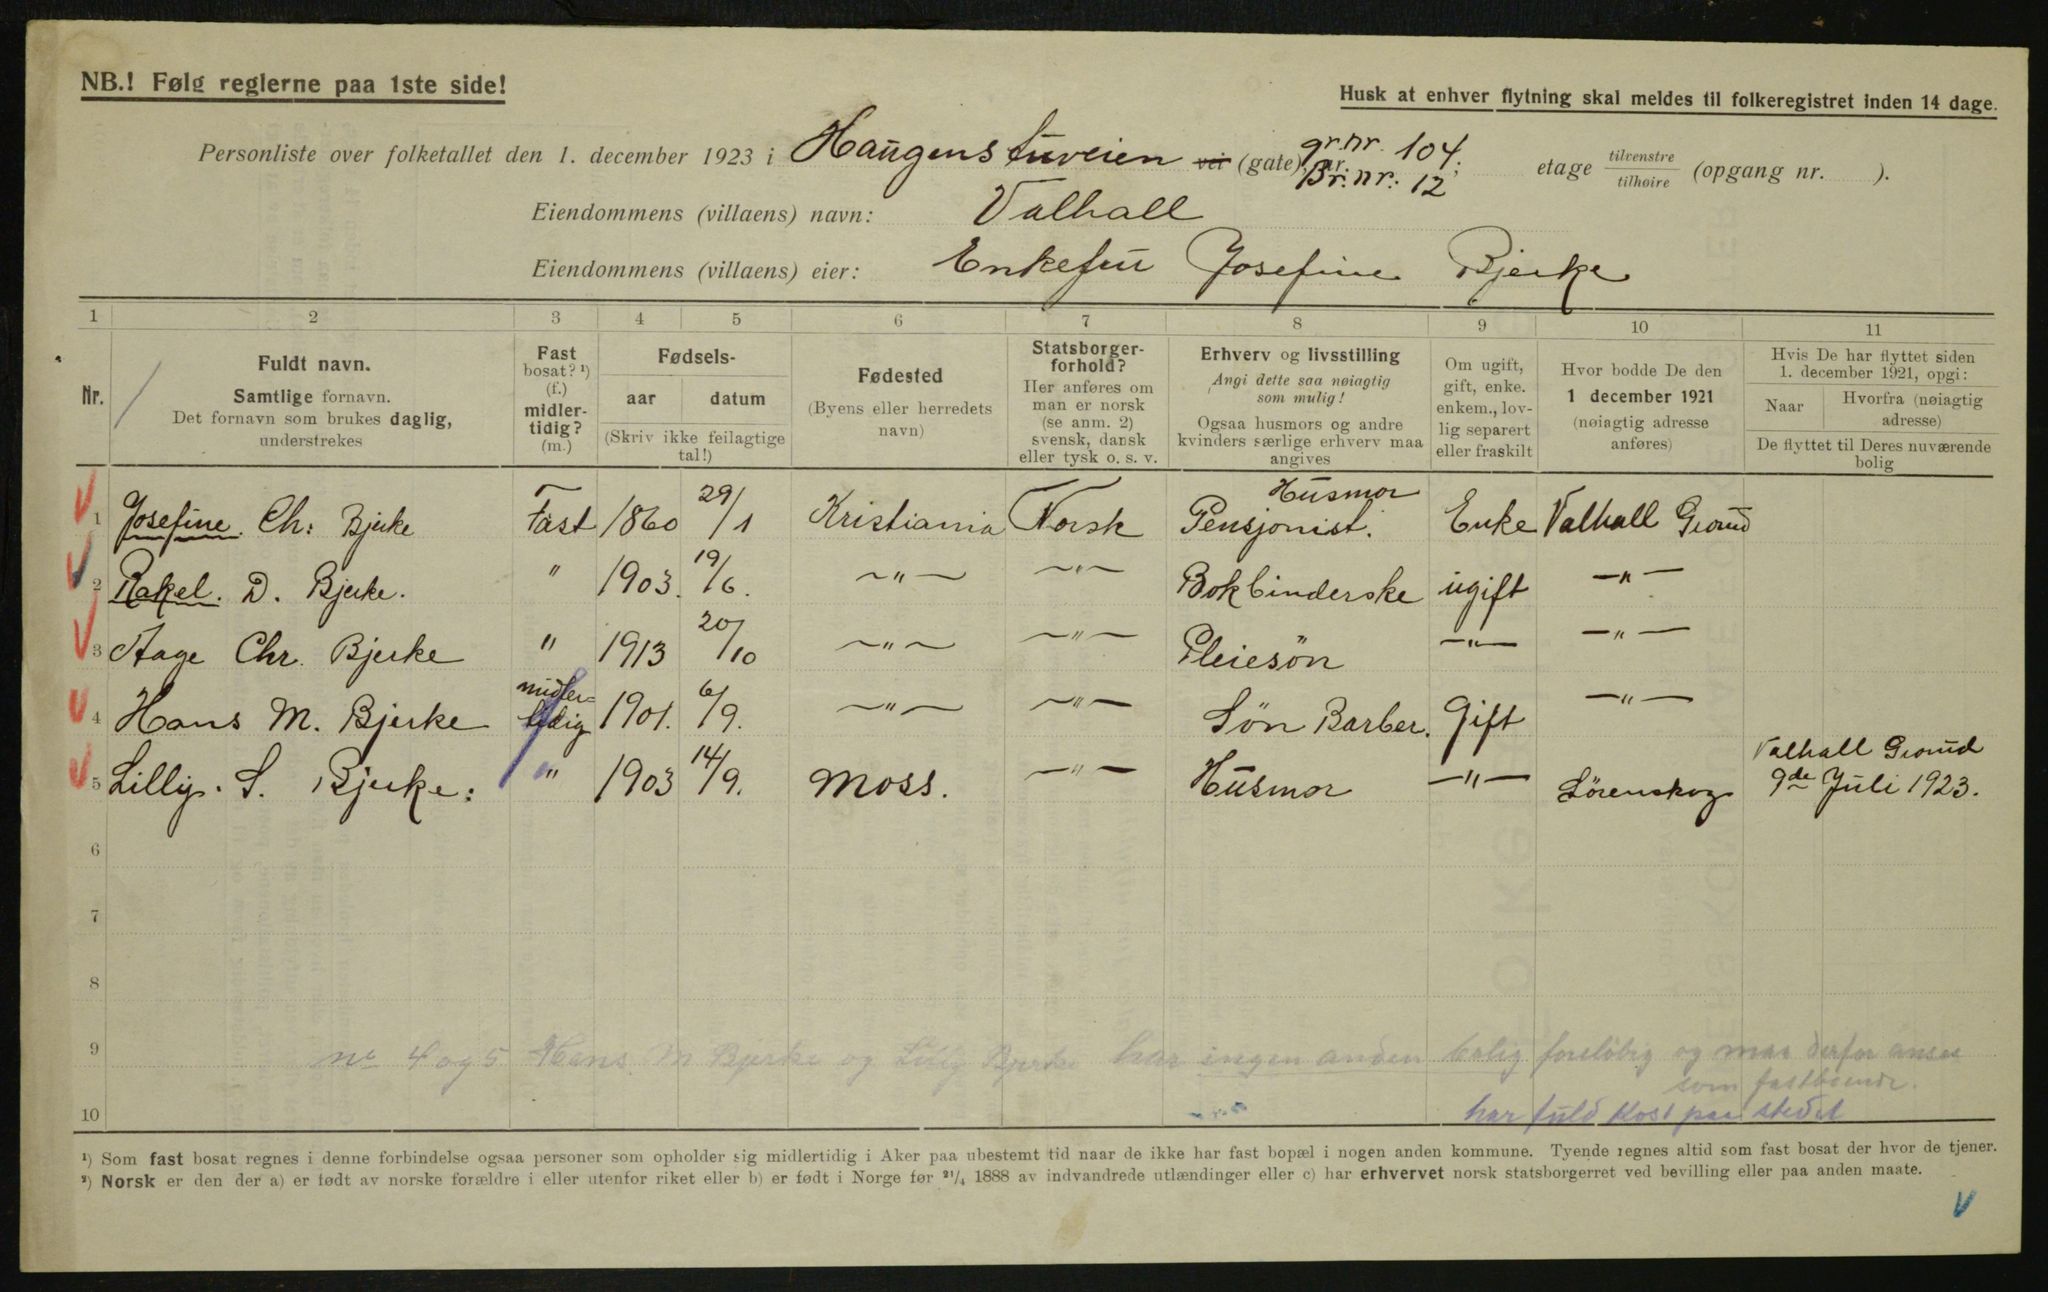 NB.! Følg reglerne paa 1ste side!
Husk at enhver flytning skal meldes til folkeregistret inden 14 dage.
Personliste over folketallet den 1. december 1923 i Haugenstuveien vei (gate), nr. gr.nr. 104; Br.nr.: 12 etage tilvenstre tilhøire (opgang nr. ).
Eiendommens (villaens) navn: Valhall
Eiendommens (villaens) eier: Enkefru Josefine Bjerke
1 2 3 4 5 6 7 8 9 10 11
Nr.
Fuldt navn.
Samtlige fornavn.
Det fornavn som brukes daglig,
understrekes
Fast
bosat? ¹)
(f.)
midler-
tidig?
(m.)
Fødsels-
aar datum
(Skriv ikke feilagtige
tal!)
Fødested
(Byens eller herredets
navn)
Statsborger-
forhold?
Her anføres om
man er norsk
(se anm. 2)
svensk, dansk
eller tysk o. s. v.
Erhverv og livsstilling
Angi dette saa nøiagtig
som mulig!
Ogsaa husmors og andre
kvinders særlige erhverv maa
angives
Om ugift,
gift, enke.
enkem., lov-
lig separert
eller fraskilt
Hvor bodde De den
1 december 1921
(nøiagtig adresse
anføres)
Hvis De har flyttet siden
1. december 1921, opgi:
Naar Hvorfra (nøiagtig
adresse)
De flyttet til Deres nuværende
bolig
1 Josefine Ch: Bjerke Fast 1860 29/1 Kristiania Norsk Husmor Pensjonist. Enke Valhall Grorud
2 Rakel. D. Bjerke. " 1903. 19/6. -"- -"- Bokbinderske ugift -"-
3 Aage Chr. Bjerke " 1913 20/10 -"- -"- Pleiesön -"- -"-
4 Hans M. Bjerke midler-tidig 1901. 6/9. -"- -"- Sön Barber. Gift -"-
5 Lilly. S. Bjerke: " 1903 14/9. Moss. -"- Husmor -"- Sörenskog Valhall Grorud 9de Juli 1923.
6
7
8
9 no 4 og 5 Hans M Bjerke og Lilly Bjerke har ingen anden bolig foreløbig og maa derfor anses
som fastboende.
10 har fuld kost paa stedet
¹) Som fast bosat regnes i denne forbindelse ogsaa personer som opholder sig midlertidig i Aker paa ubestemt tid naar de ikke har fast bopæl i nogen anden kommune. Tyende regnes altid som fast bosat der hvor de tjener.
²) Norsk er den der a) er født av norske forældre i eller utenfor riket eller b) er født i Norge før ²¹/₄ 1888 av indvandrede utlændinger eller c) har erhvervet norsk statsborgerret ved bevilling eller paa anden maate.